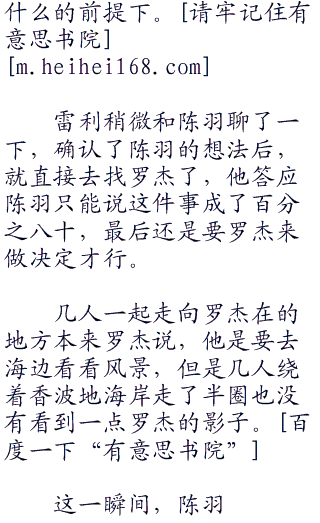 什么的前提下。[请牢记住有
意思书院]
[m.heihei168.com]
雷利稍微和陈羽聊了一
下，确认了陈羽的想法后，
就直接去找罗杰了，他答应
陈羽只能说这件事成了百分
之八十，最后还是要罗杰来
做决定才行。
几人一起走向罗杰在的
地方本来罗杰说，他是要去
海边看看风景，但是几人绕
着香波地海岸走了半圈也没
有看到一点罗杰的影子。[百
度一下“有意思书院”]
这一瞬间，陈羽